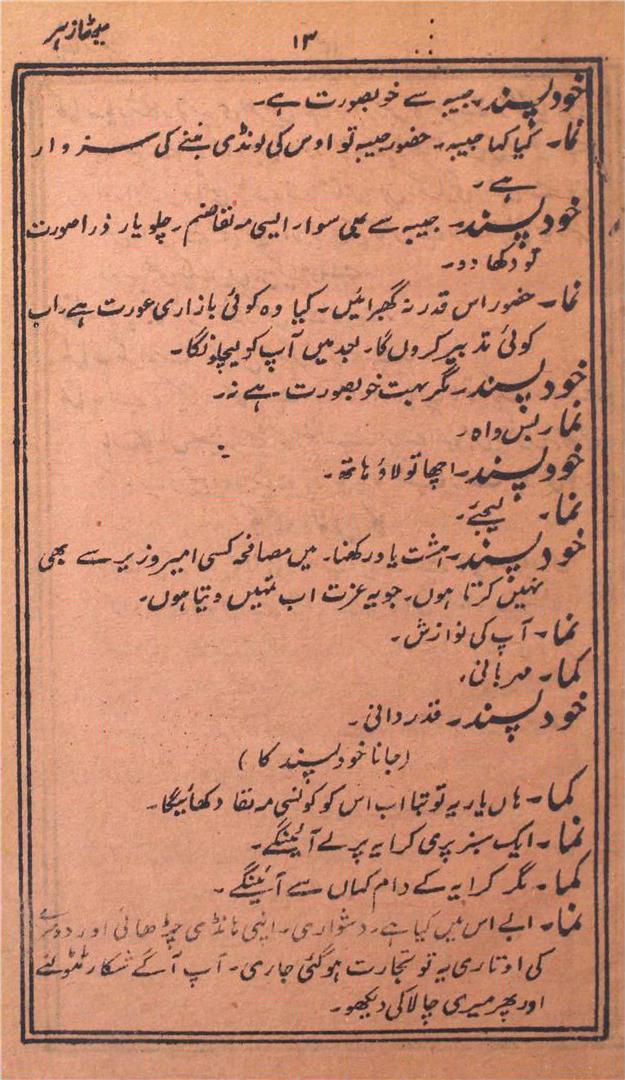 میٹھا زہر
۱۳
خود پسند۔ جیبہ سے خوبصورت ہے۔
نما۔ کیا کہا جیبہ۔ حضور جیبہ تو اوس کی لونڈی بننے کی سزوار
ہے۔
خود پسند۔ جیبہ سے بھی سوا۔ ایسی مہ لقا صنم۔ چلو یار ذرا صورت
تو دکھا دو۔
نما۔ حضور اس قدر نہ گھبرائیں۔ کیا وہ کوئی بازاری عورت ہے۔ اب
کوئی تدبیر کروں گا۔ بعد میں آپ کو لیچلونگا۔
خود پسند۔ مگر بہت خوبصورت ہے نہ۔
نما۔ بس واہ۔
خود پسند۔ اچھا تو لاؤ ہاتھ۔
نما۔ لیجئے۔
خود پسند۔ ہشت یاد رکھنا۔ میں مصافحہ کسی امیر وزیر سے بھی
نہیں کرتا ہوں۔ جو یہ عزت اب تمہیں دیتا ہوں۔
نما۔ آپ کی نوازش۔
کما۔ مہربانی۔
خود پسند۔ قدردانی۔
(جانا خود پسند کا)
کما۔ ہاں یار یہ تو بتا اب اس کو کونسی مہ لقا دکھائیگا۔
نما۔ ایک سبز پری کرایہ پر لے آئینگے۔
کما۔ مگر کرایہ کے دام کہاں سے آئینگے۔
نما۔ ابے اس میں کیا ہے۔ دشواری۔ ایسی ہانڈی چڑھائی اور دوسرے
کی اوتاری یہ تو تجارت ہوگئی جاری۔ آپ آگے شکار ٹٹولئے
اور پھر میری چالاکی دیکھو۔